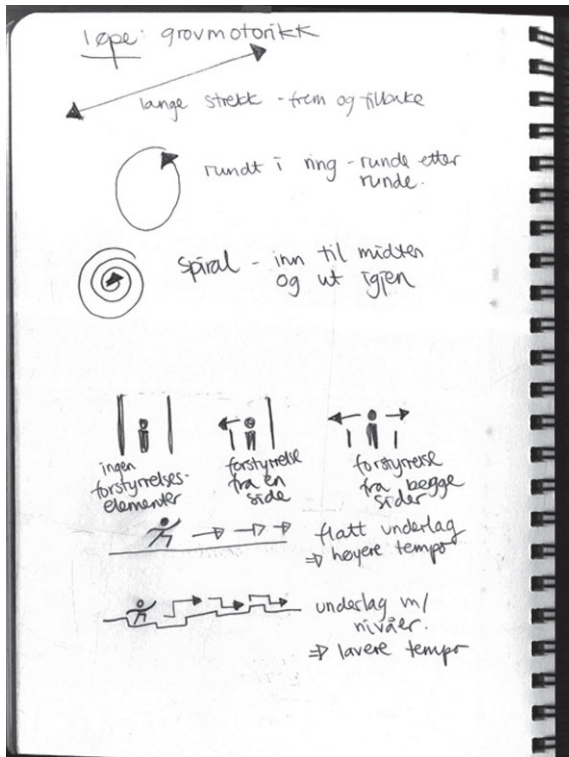 løpe: grovmotorikk
lange strekk - frem og tilbake
rundt i ring - runde etter
runde.
spiral - inn til midten
og ut igjen
ingen
forstyrrelses-
elementer
forstyrrelse
fra en
side
forstyrrelse
fra begge
sider
flatt underlag
⇒ høyere tempo
underlag m/
nivåer.
⇒ lavere tempo